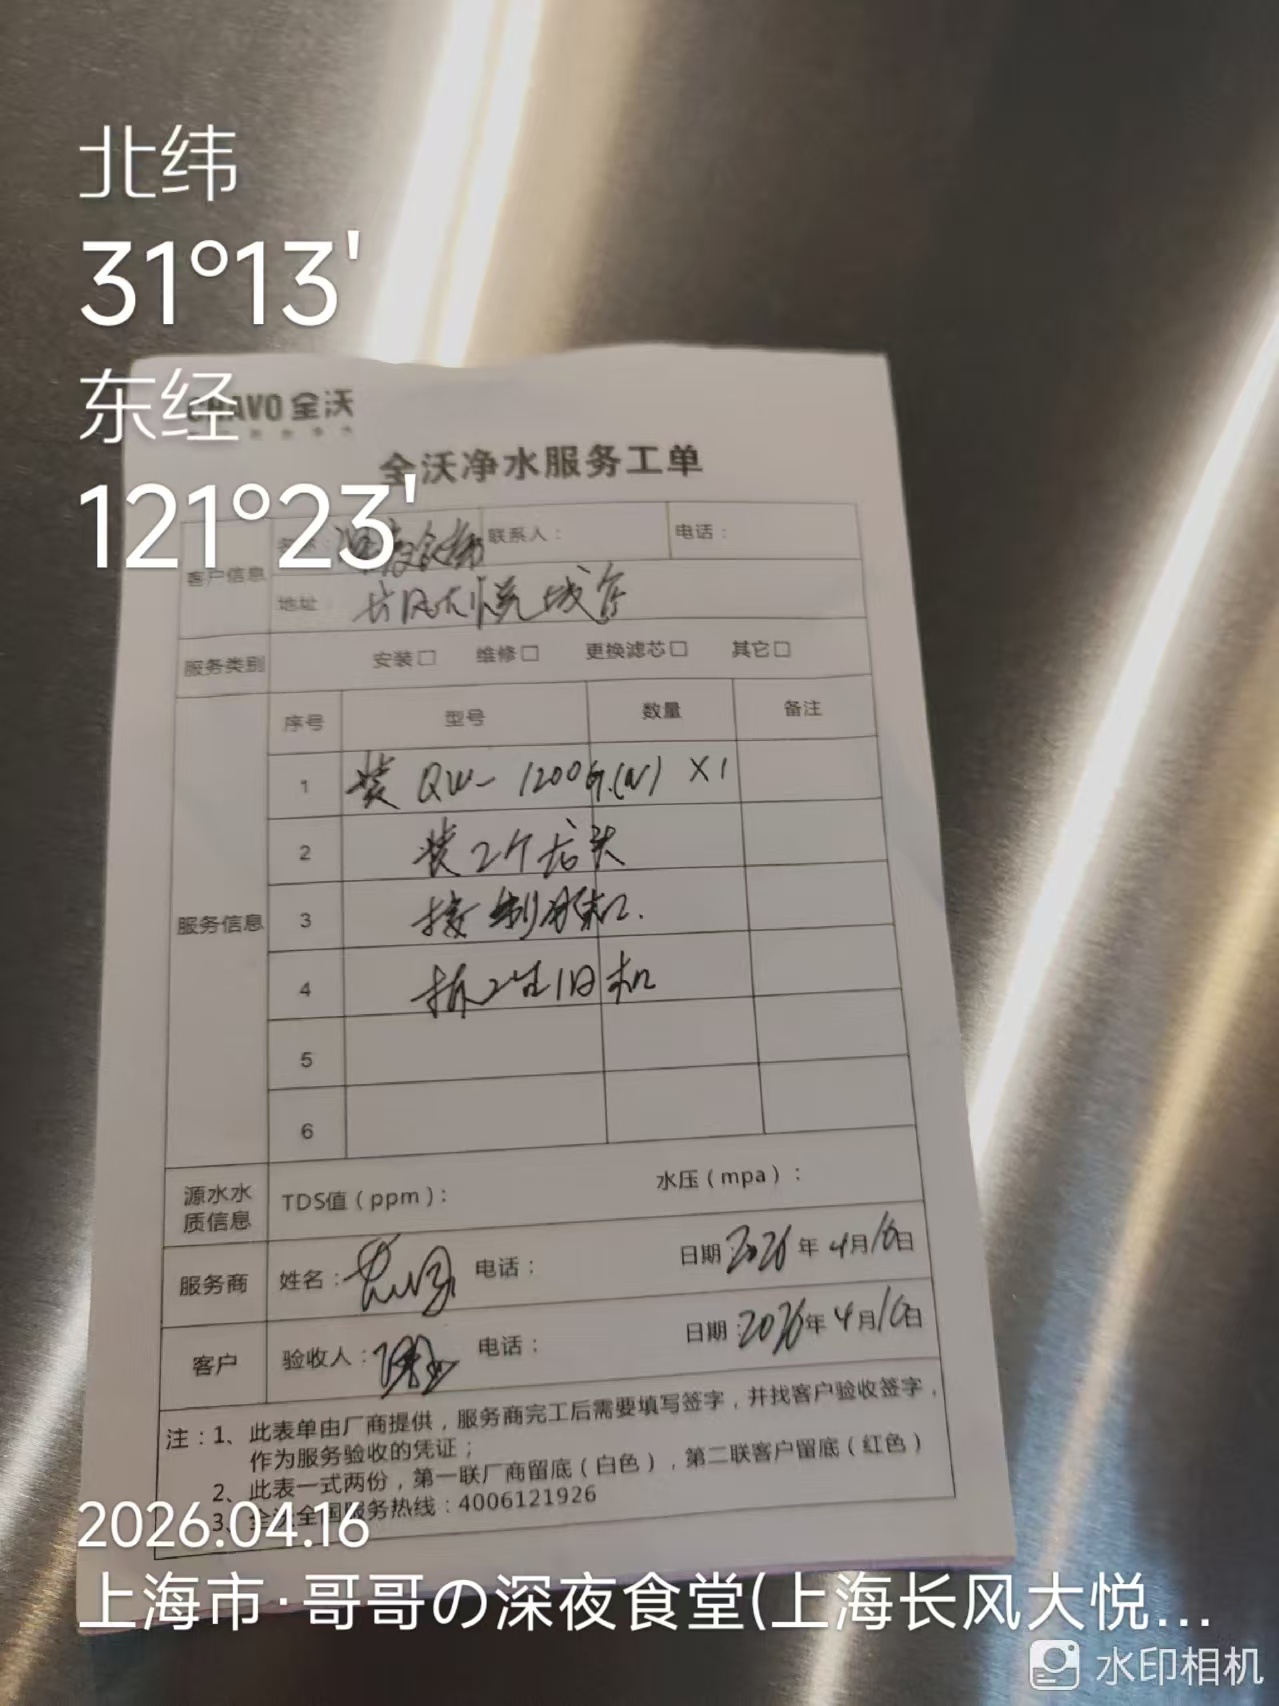 北纬
31°13'
东经
121°23'
CHAVO 全沃
全沃净水服务工单
客户信息
名称：深夜食堂 联系人： 电话：
地址 长风大悦城店
服务类别 安装□ 维修□ 更换滤芯□ 其它□
服务信息
序号 型号 数量 备注
1 装 QW-1200G(N) X1
2 装2个龙头
3 接制冰机.
4 拆2台旧机
5
6
源水水质信息 TDS值（ppm）： 水压（mpa）：
服务商 姓名： 电话： 日期 2026年4月16日
客户 验收人： 电话： 日期：2026年4月16日
注：1、此表单由厂商提供，服务商完工后需要填写签字，并找客户验收签字，
作为服务验收的凭证；
2、此表一式两份，第一联厂商留底（白色），第二联客户留底（红色）
3、全沃全国服务热线：4006121926
2026.04.16
上海市·哥哥の深夜食堂(上海长风大悦...
水印相机